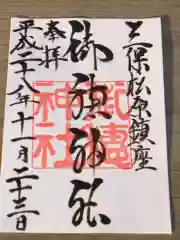 三保松原鎮座
御穂神社
奉拝
平成二十八年十一月二十三日
神社